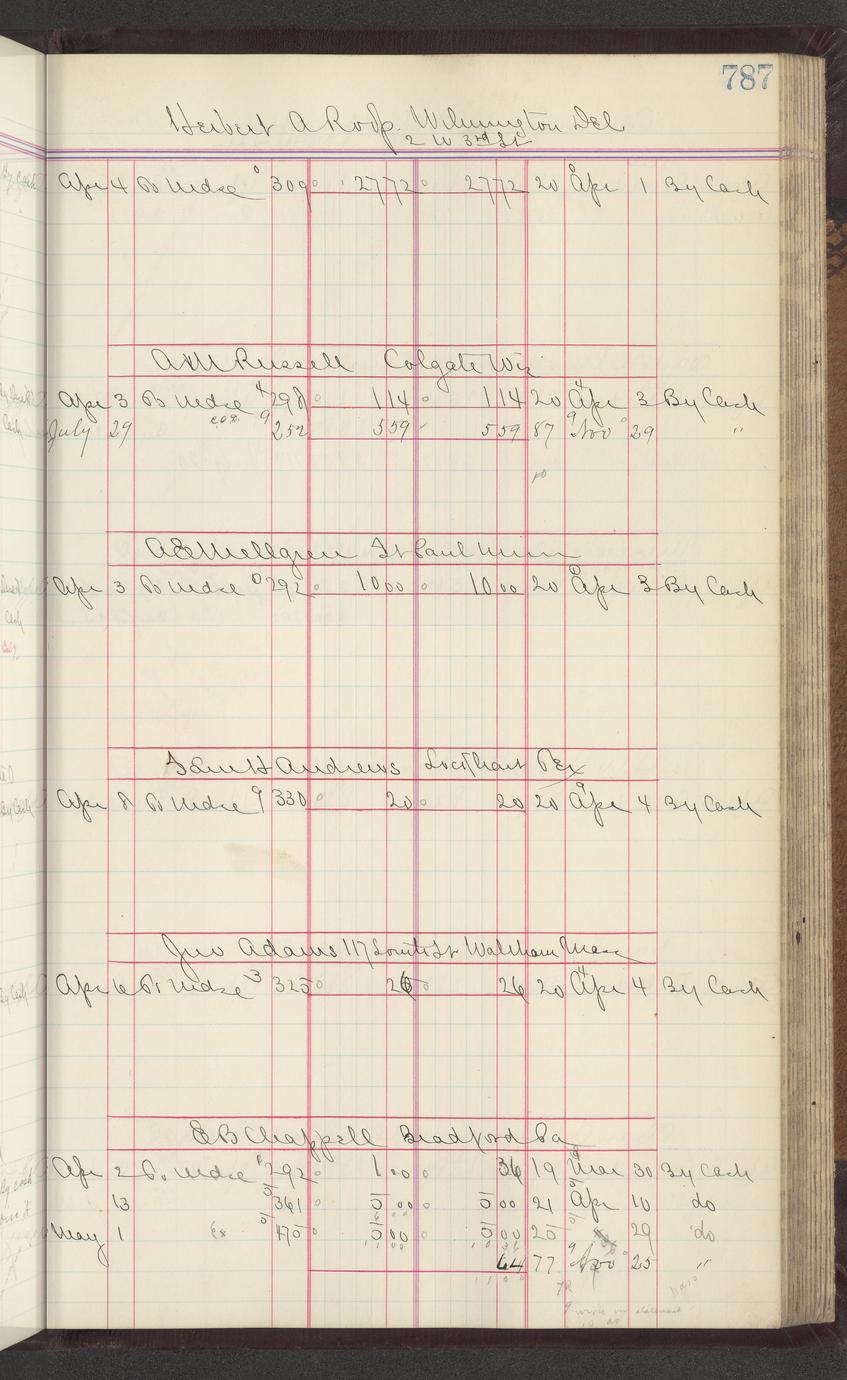 787
Herbert A Rodp. Wilmington Del
2 W 3rd St
Apr 4 To Mdse 309 2772 2772 20 Apr 1 By Cash
A M Russell Colgate Wis
Apr 3 To Mdse 4 298 114 114 20 4 Apr 3 By Cash
July 29 9 252 559 559 87 9 Nov 29 "
A E Mellgren St Paul Minn
Apr 3 To Mdse 0 292 1000 1000 20 Apr 3 By Cash
Sam H Andrews Lockhart Tex
Apr 8 To Mdse 9 330 20 20 20 9 Apr 4 By Cash
Jno Adams 117 South St Waltham Mass
Apr 6 To Mdse 3 325 26 26 20 4 Apr 4 By Cash
E B Chappell Bradford Pa
Apr 2 To Mdse 292 1 00 36 19 Mar 30 By Cash
13 361 5 00 5 00 21 Apr 10 do
May 1 Ex 475 5 00 5 00 25 29 do
64 77 9 Nov 25 "
11 00